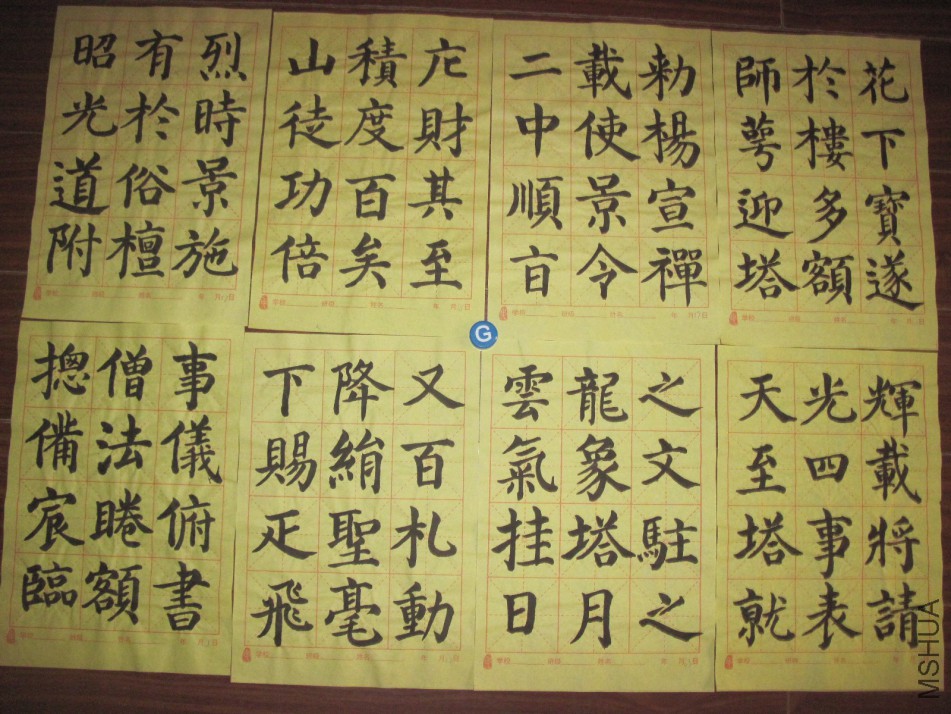 昭有烈
光於時
道俗景
附檀施
山積庀
徒度財
功百其
倍矣至
二載勑
中使楊
順景宣
旨令禪
師於花
萼樓下
迎多寶
塔額遂
摠僧事
備法儀
宸睠俯
臨額書
下降又
賜絹百
疋聖札
飛毫動
雲龍之
氣象文
挂塔駐
日月之
天光輝
至四載
塔事將
就表請
G
MSHUA